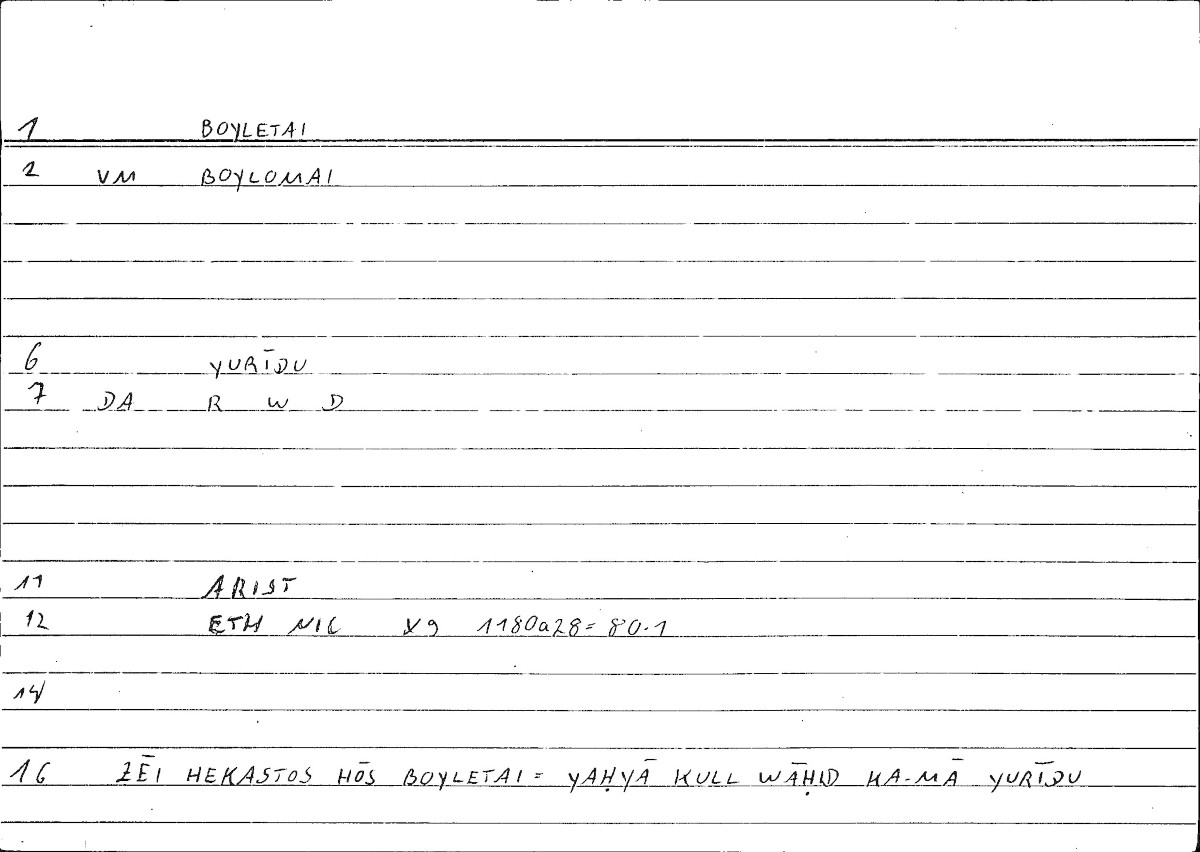 1 BOYLETAI
2 VM BOYLOMAI
6 YURĪDU
7 DA R W D
11 ARIST
12 ETH NIC X9 1180a28=80.1
14
16 ZĒI HEKASTOS HŌS BOYLETAI = YAḤYĀ KULL WĀḤID KA-MĀ YURĪDU